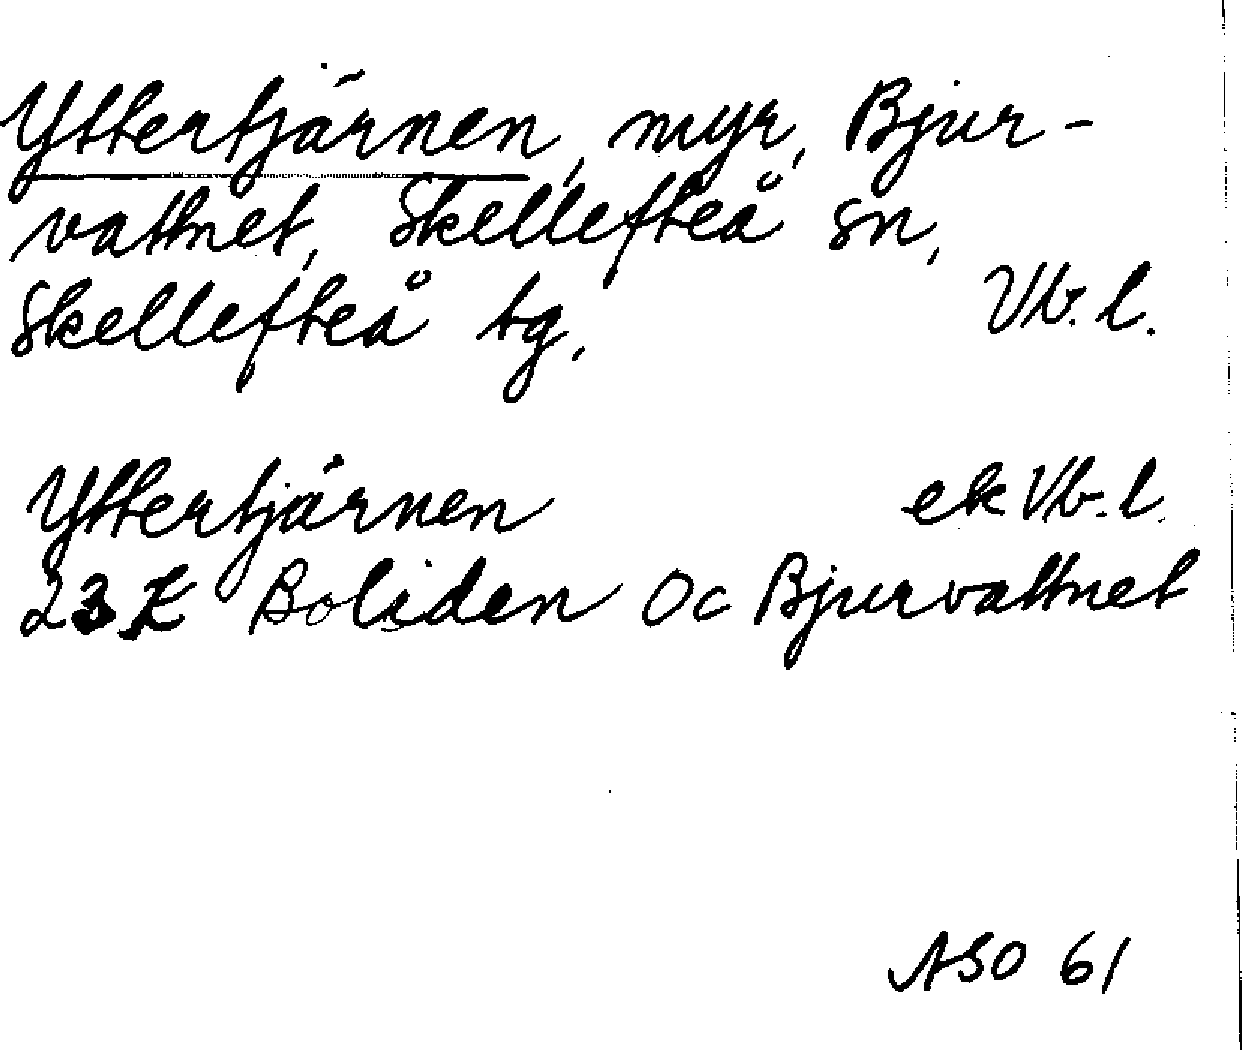 Yttertjärnen, myr, Bjur-
vattnet, Skellefteå sn,
Skellefteå tg. Vb. l.
Yttertjärnen ek Vb. l.
23 K Boliden 0c Bjurvattnet
ASO 61